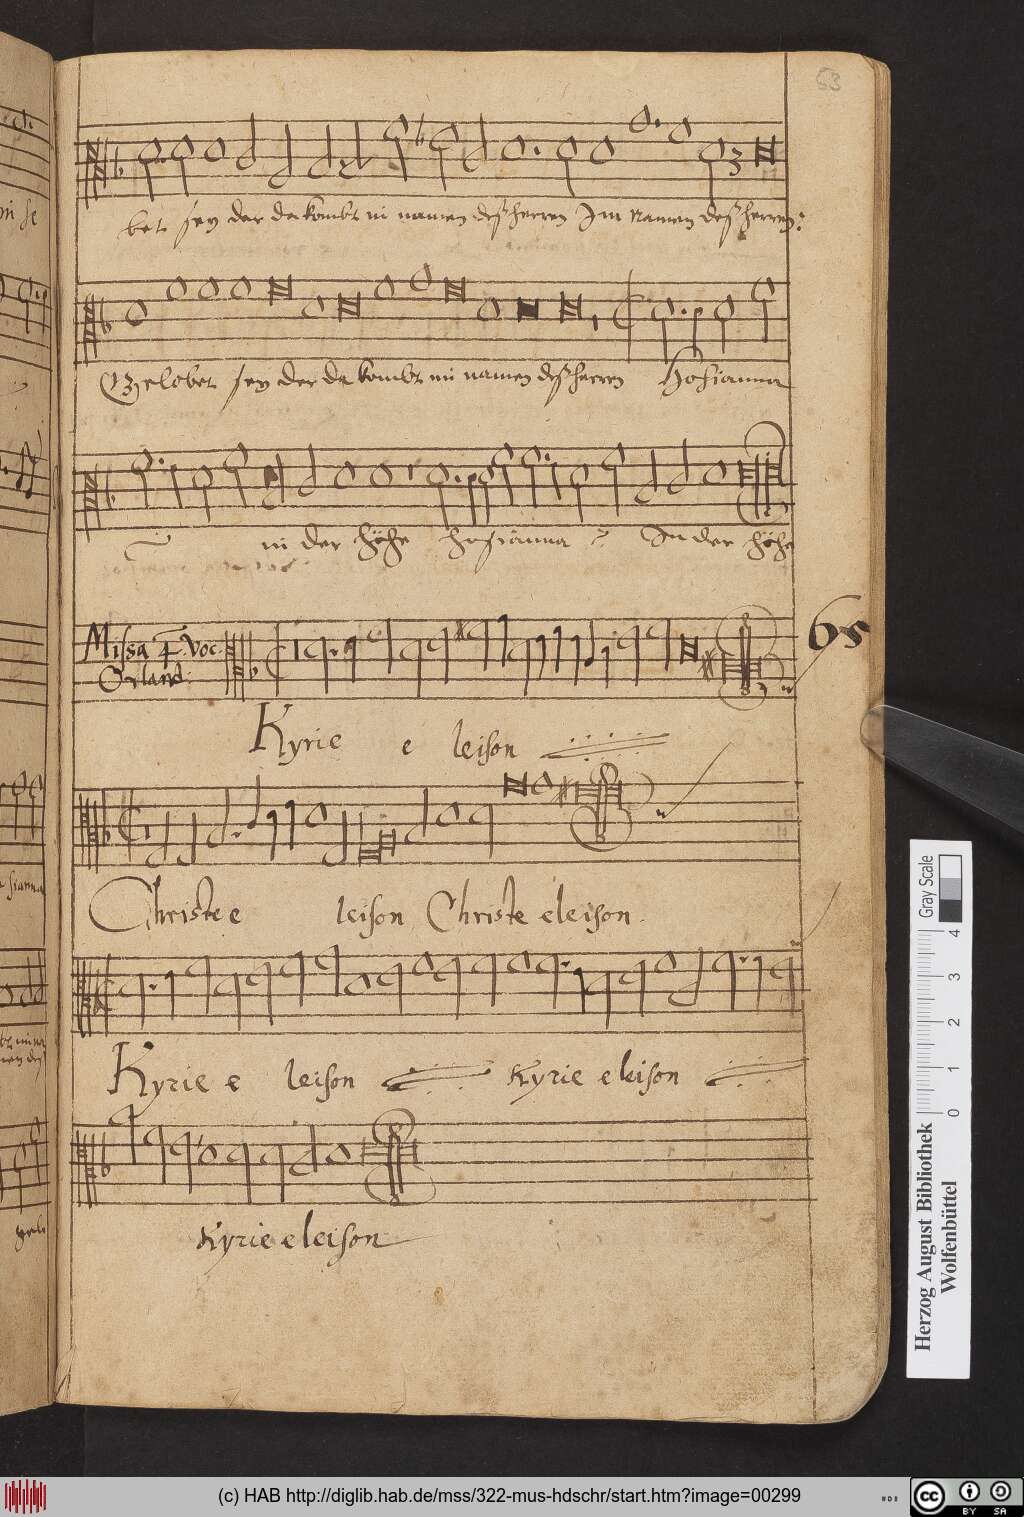 53
bet sey der da kombt in namen deß herren Im namen deß herren
3
Gelobet sey der da kombt in namen deß herren Hosianna
in der höhe hosianna In der höhe
Missa 4 Voc.
Orland:
65
Kyrie e leison
Christe e leison Christe eleison.
Kyrie e leison Kyrie eleison
Kyrie eleison
Gray Scale
0 1 2 3 4
Herzog August Bibliothek
Wolfenbüttel
(c) HAB http://diglib.hab.de/mss/322-mus-hdschr/start.htm?image=00299
cc BY SA